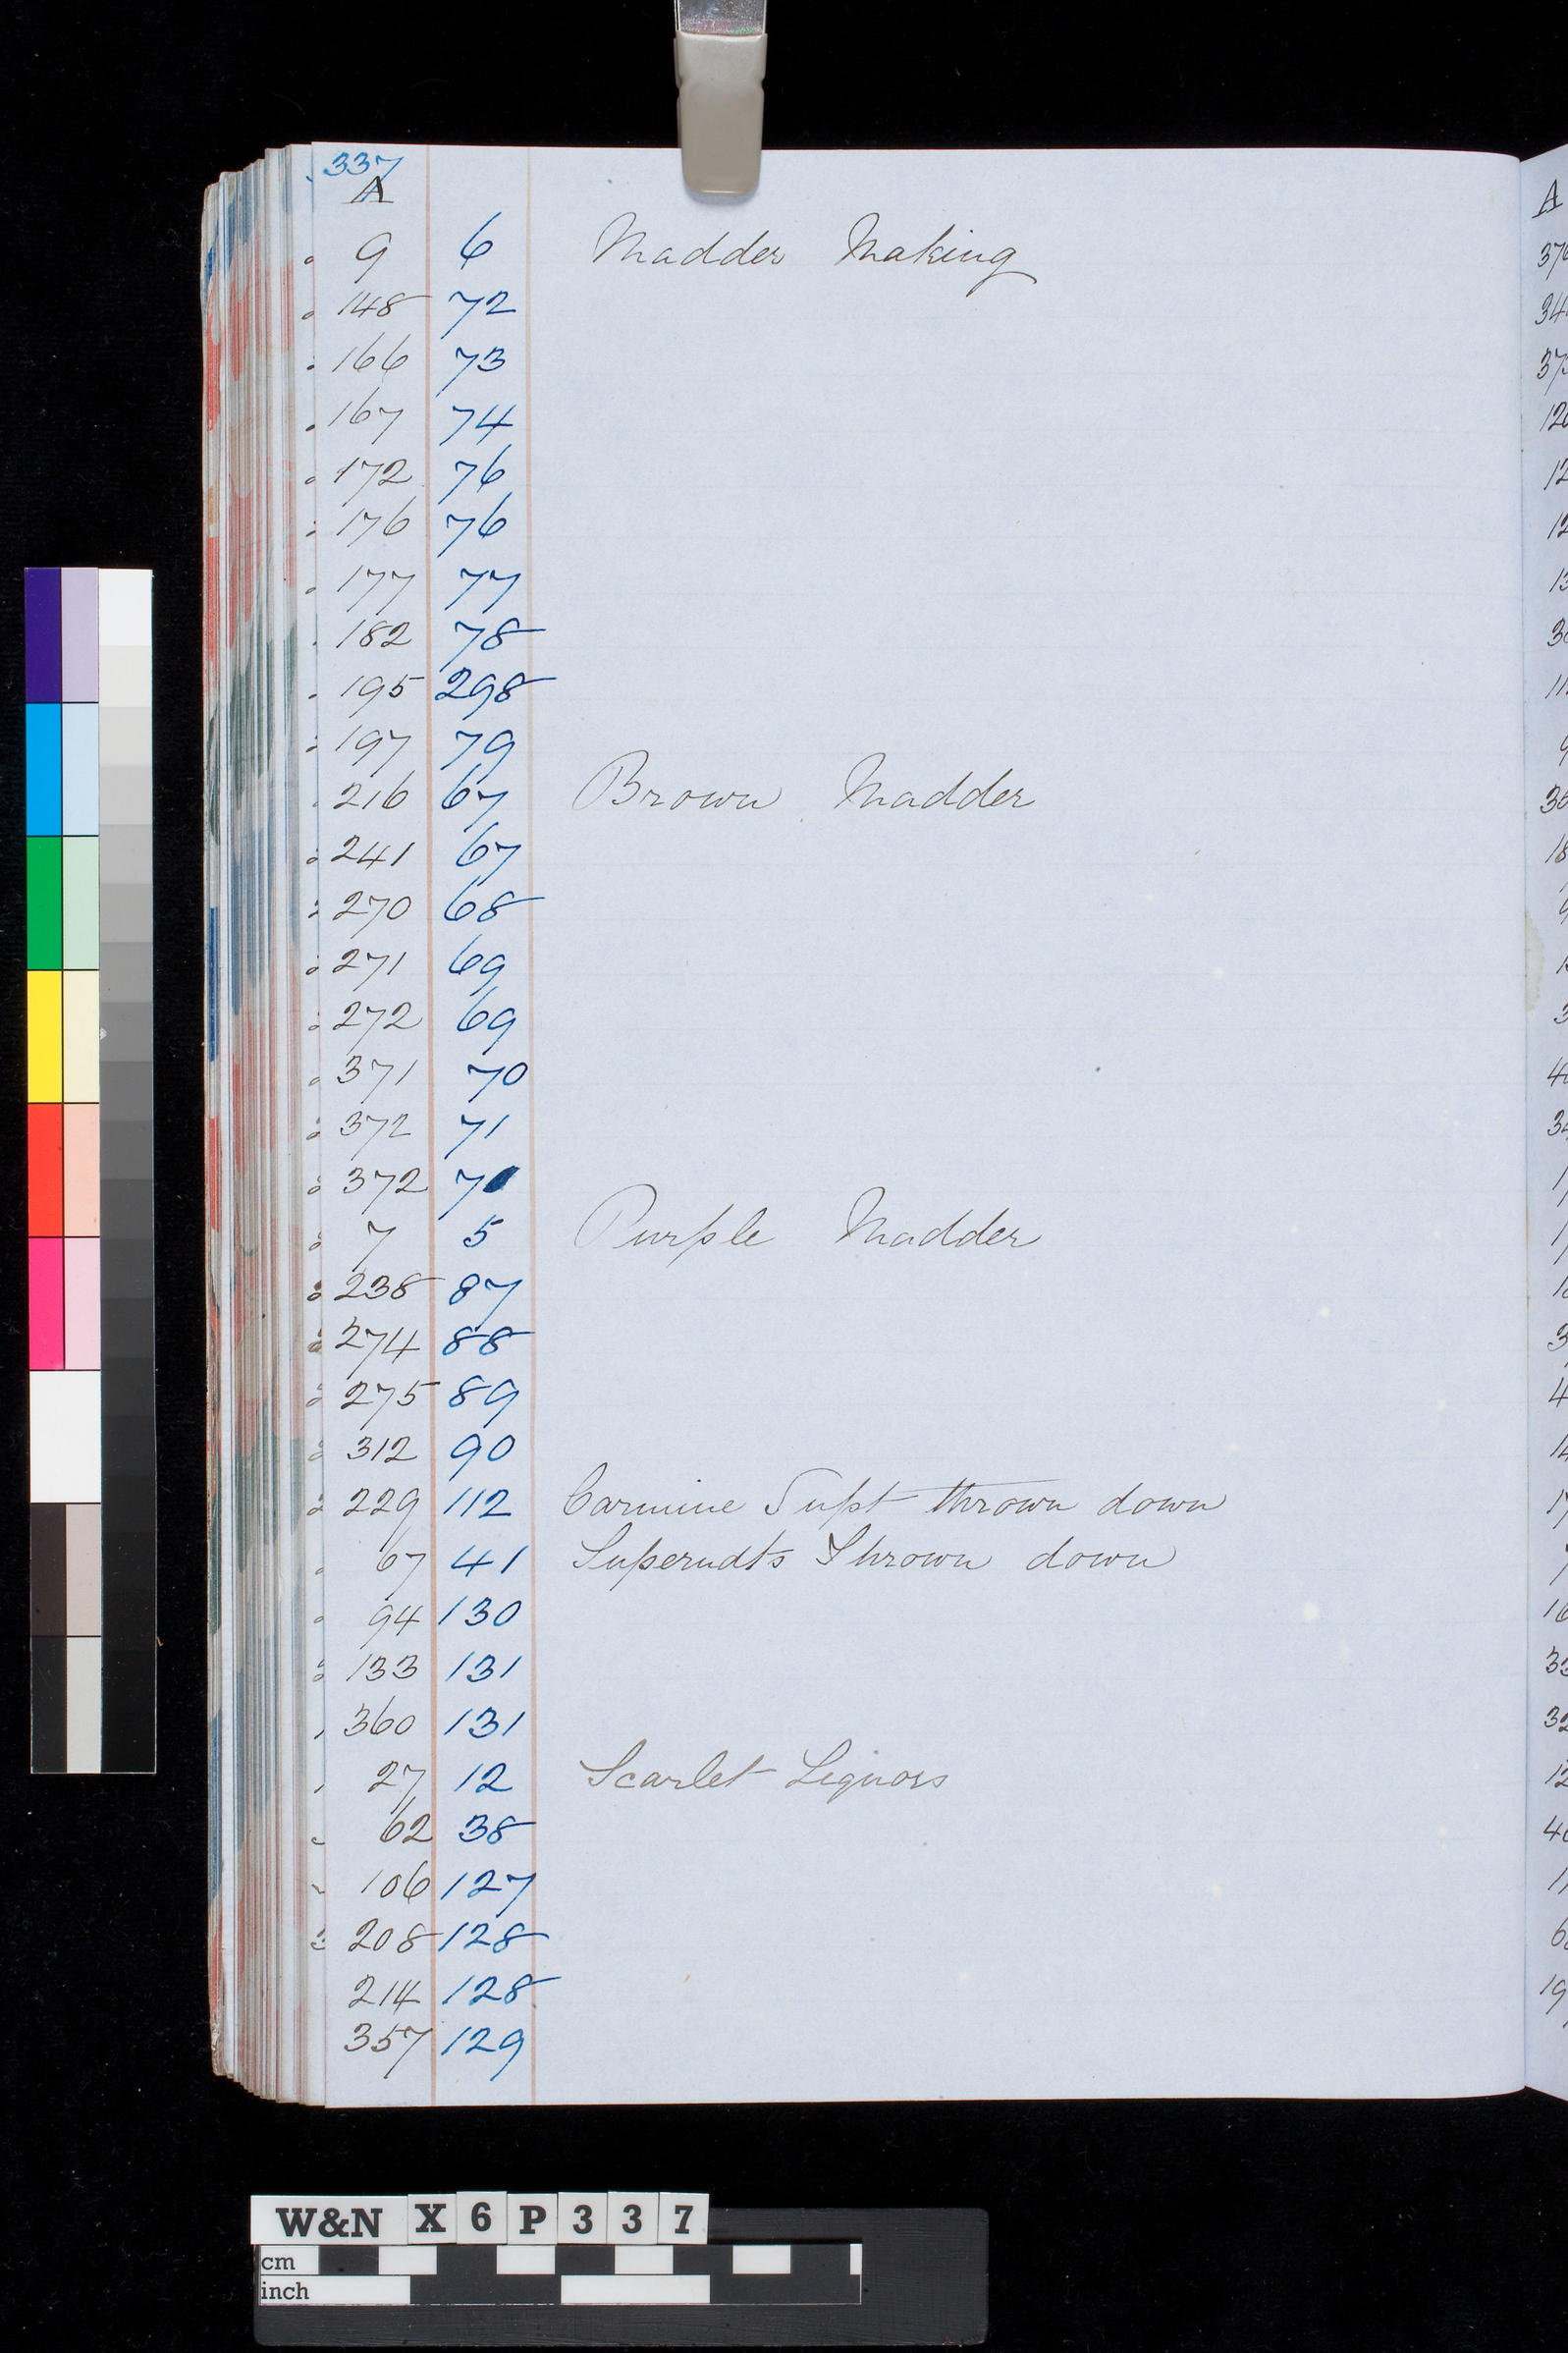 337
A
9 6 Madder Making
148 72
166 73
167 74
172 76
176 76
177 77
182 78
195 298
197 79
216 67 Brown Madder
241 67
270 68
271 69
272 69
371 70
372 71
372 70
7 5 Purple Madder
238 87
274 88
275 89
312 90
229 112 Carmine Supt thrown down
67 41 Superndts Thrown down
94 130
133 131
360 131
27 12 Scarlet Liquors
62 38
106 127
208 128
214 128
357 129
A
W&N X6P337
cm
inch